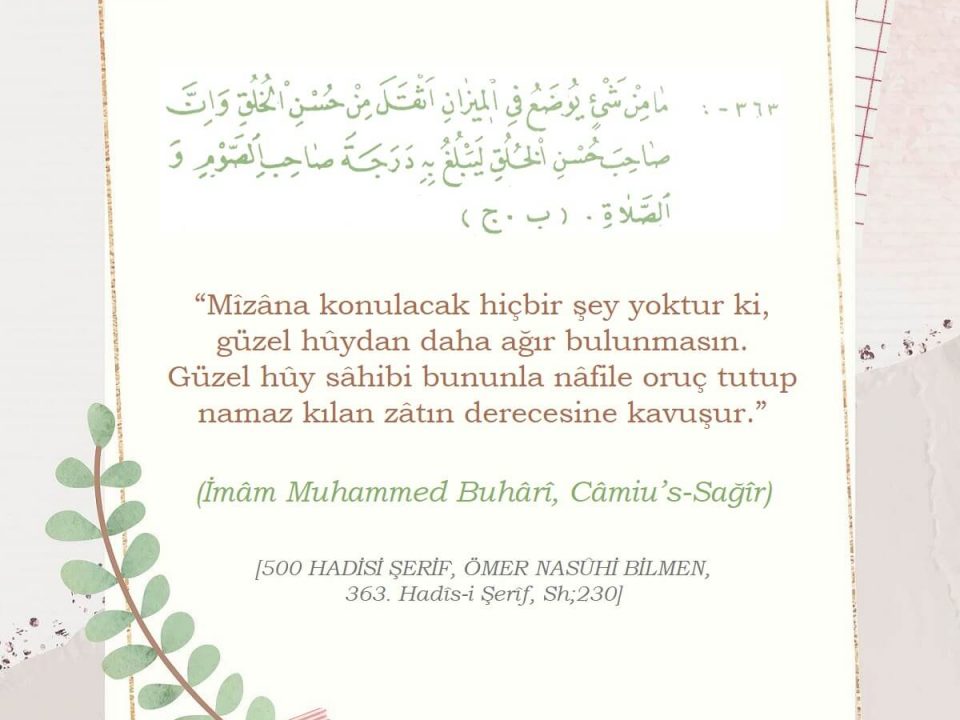 ٣٦٣- : مٰا مِنْ شَيْئٍ يُوضَعُ فِي الْمِيزٰانِ اَثْقَلَ مِنْ حُسْنِ الْخُلُقِ وَاِنَّ
صٰاحِبَ حُسْنِ الْخُلُقِ لَيَبْلُغُ بِهِ دَرَجَةَ صٰاحِبِ الصَّوْمِ وَ
الصَّلٰاةِ . ( ب . ج )
“Mîzâna konulacak hiçbir şey yoktur ki,
güzel hûydan daha ağır bulunmasın.
Güzel hûy sâhibi bununla nâfile oruç tutup
namaz kılan zâtın derecesine kavuşur.”
(İmâm Muhammed Buhârî, Câmiu’s-Sağîr)
[500 HADİSİ ŞERİF, ÖMER NASÛHİ BİLMEN,
363. Hadîs-i Şerîf, Sh;230]